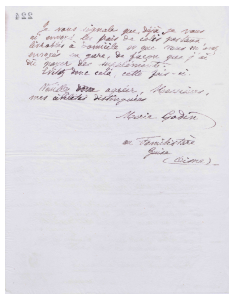 224
Je vous signale que, déjà, je vous
ai envoyé les frais de colis postaux
livrables à domicile et que vous m'avez
envoyés en gare, de façon que j'ai
dû payer des suppléments.
Évitez donc cela, cette fois-ci.
Veuillez donc agréer, Messieurs,
mes civilités distinguées
Marie Godin
au Familistère
Guise
(Aisne)